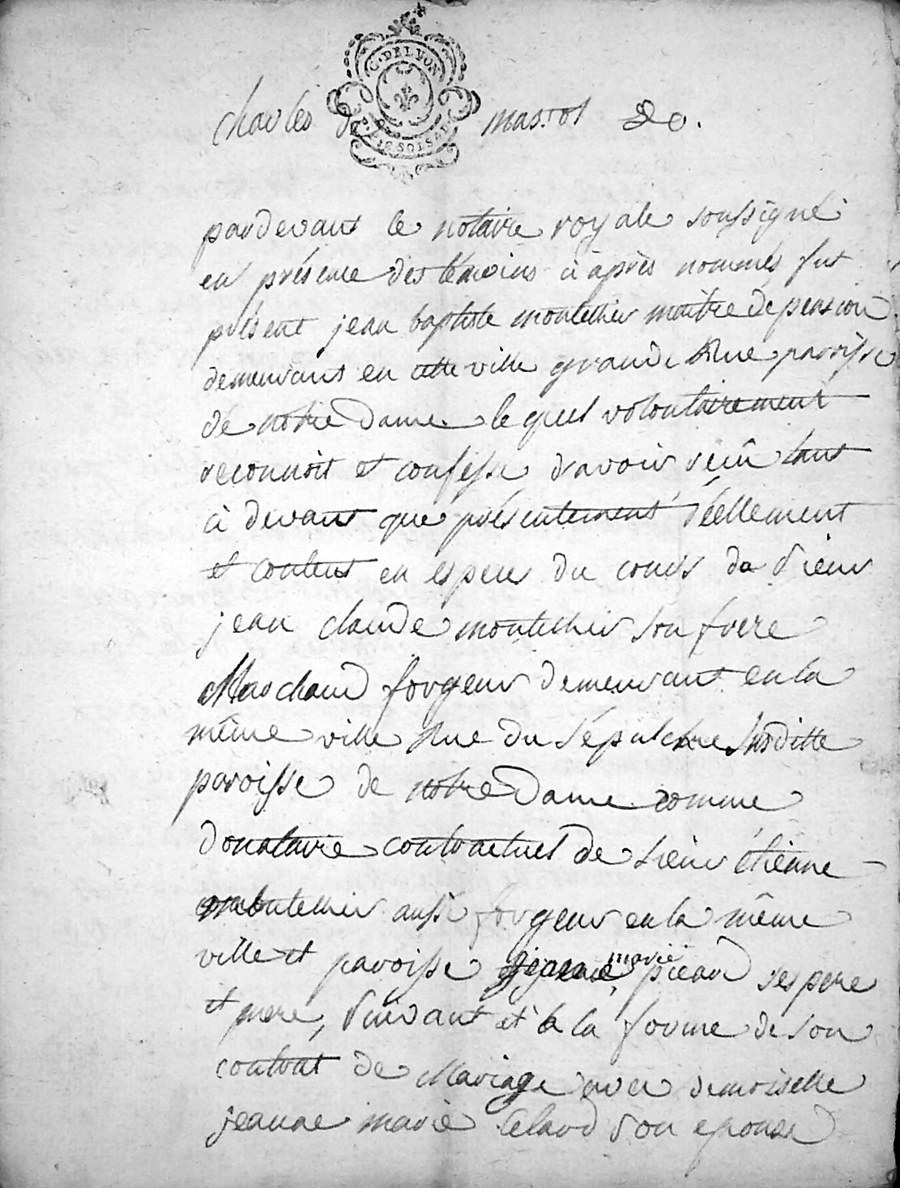 G. DE LYON
charles mas
pardevant le notaire royale soussigné
en présence des témoins ci après nommés fut
présent jean baptiste montellier maitre de pension
demeurant en cette ville grande Rue paroisse
de notre Dame lequel volontairement
reconnoit et confesse d'avoir reçû tant
ci devant que présentement réellement
et content en especes du cours de Sieur
jean claude montellier son frere
Marchand forgeur demeurant en la
même ville Rue du Sépulchre Susditte
paroisse de notre Dame comme
donataire contractuel de sieur étienne
montellier aussi forgeur en la même
ville et paroisse marie ses pere
et mere, Suivant et à la forme de son
contrat de Mariage avec demoiselle
jeanne marie Son epouse